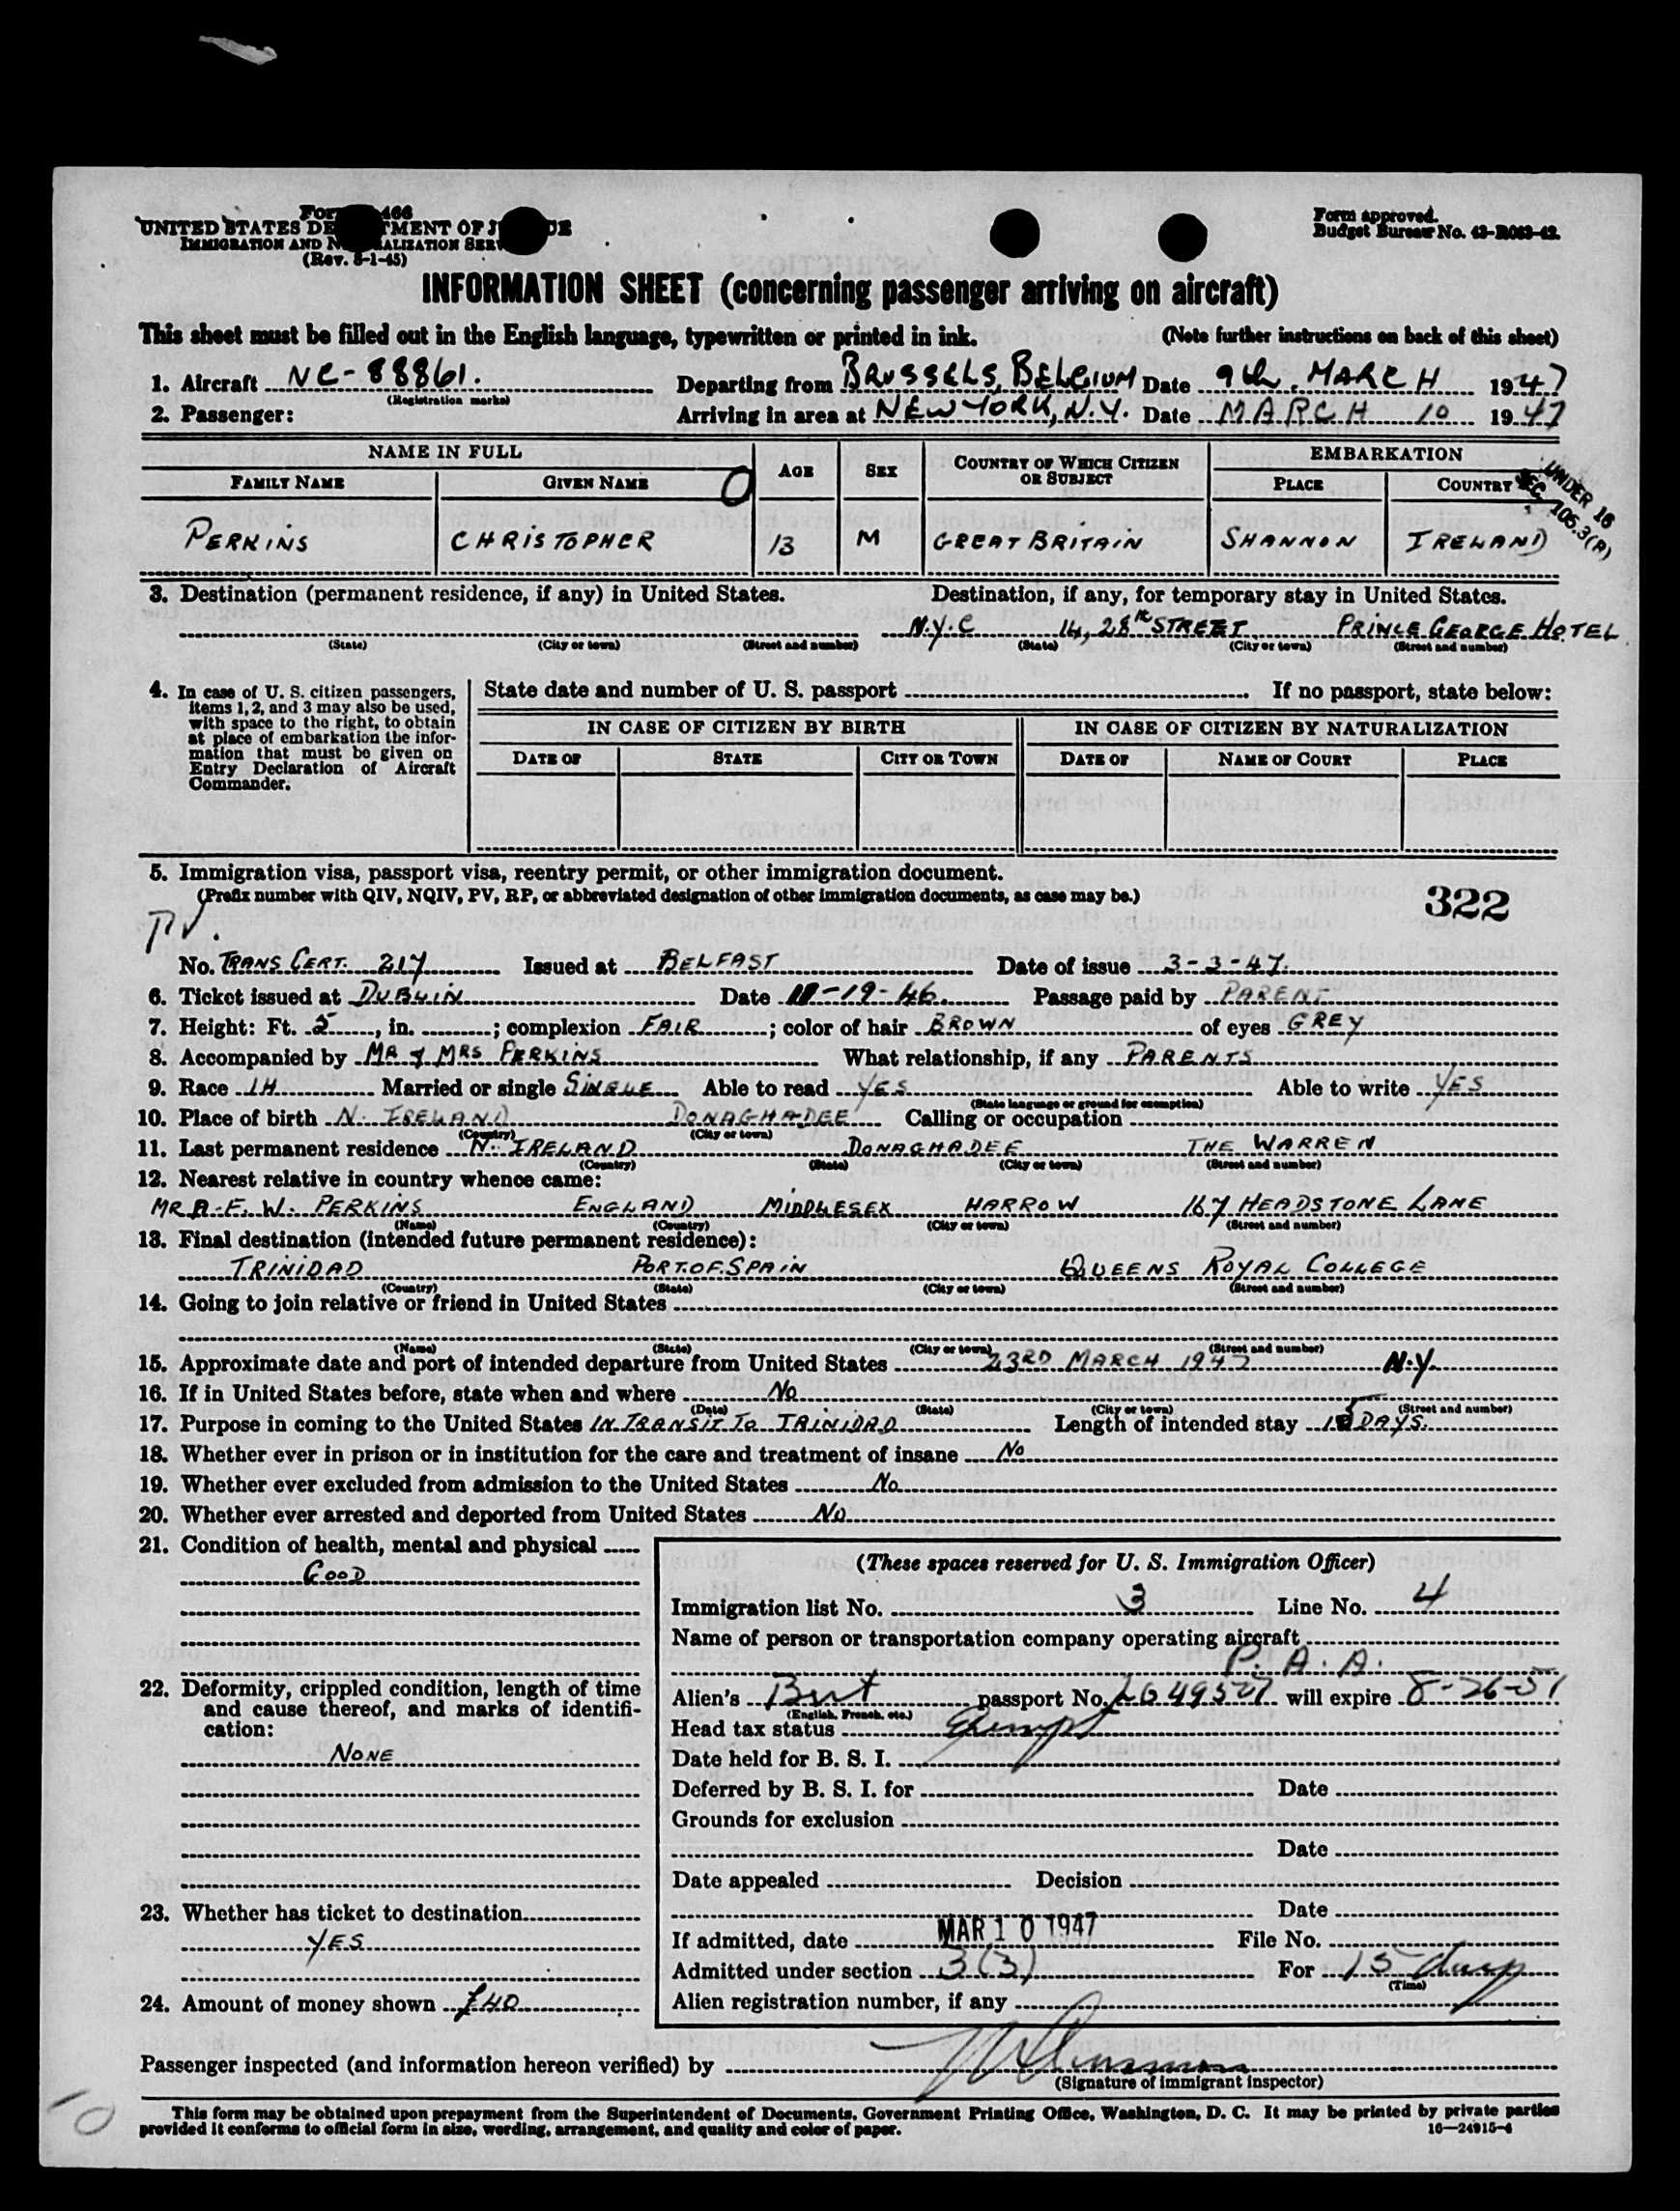 UNITED STATES DE TMENT OF J
IMMIGRATION AND N ALIZATION SERV
(Rev. 5-1-45)
Form approved.
Budget Bureau No. 43-R063-42.
INFORMATION SHEET (concerning passenger arriving on aircraft)
This sheet must be filled out in the English language, typewritten or printed in ink. (Note further instructions on back of this sheet)
1. Aircraft NC-88861. Departing from BRUSSELS, BELGIUM Date 9th. MARCH 1947
(Registration marks)
2. Passenger: Arriving in area at NEW YORK, N.Y. Date MARCH 10 1947
NAME IN FULL AGE SEX COUNTRY OF WHICH CITIZEN OR SUBJECT EMBARKATION
FAMILY NAME GIVEN NAME PLACE COUNTRY
UNDER 16
SEC. 105.3(A)
PERKINS CHRISTOPHER 13 M GREAT BRITAIN SHANNON IRELAND
3. Destination (permanent residence, if any) in United States. Destination, if any, for temporary stay in United States.
N.Y.C 14, 28th STREET PRINCE GEORGE HOTEL
(State) (City or town) (Street and number) (State) (City or town) (Street and number)
4. In case of U. S. citizen passengers, items 1, 2, and 3 may also be used, with space to the right, to obtain at place of embarkation the information that must be given on Entry Declaration of Aircraft Commander.
State date and number of U. S. passport If no passport, state below:
IN CASE OF CITIZEN BY BIRTH IN CASE OF CITIZEN BY NATURALIZATION
DATE OF STATE CITY OR TOWN DATE OF NAME OF COURT PLACE
5. Immigration visa, passport visa, reentry permit, or other immigration document.
(Prefix number with QIV, NQIV, PV, RP, or abbreviated designation of other immigration documents, as case may be.)
322
PV.
No. TRANS CERT. 217 Issued at BELFAST Date of issue 3-3-47.
6. Ticket issued at DUBLIN Date -19-46. Passage paid by PARENT
7. Height: Ft. 5, in. ; complexion FAIR; color of hair BROWN of eyes GREY
8. Accompanied by MR & MRS PERKINS What relationship, if any PARENTS
9. Race IH Married or single SINGLE Able to read YES Able to write YES
(State language or ground for exemption)
10. Place of birth N. IRELAND DONAGHADEE Calling or occupation
(Country) (City or town)
11. Last permanent residence N. IRELAND DONAGHADEE THE WARREN
(Country) (State) (City or town) (Street and number)
12. Nearest relative in country whence came:
MR A.F.W. PERKINS ENGLAND MIDDLESEX HARROW 167 HEADSTONE LANE
(Name) (Country) (City or town) (Street and number)
13. Final destination (intended future permanent residence):
TRINIDAD PORT.OF.SPAIN QUEENS ROYAL COLLEGE
(Country) (State) (City or town) (Street and number)
14. Going to join relative or friend in United States
(Name) (State) (City or town) (Street and number)
15. Approximate date and port of intended departure from United States 23RD MARCH 1947 N.Y.
16. If in United States before, state when and where No
(Date) (State) (City or town) (Street and number)
17. Purpose in coming to the United States IN TRANSIT TO TRINIDAD Length of intended stay 15 DAYS.
18. Whether ever in prison or in institution for the care and treatment of insane No
19. Whether ever excluded from admission to the United States No
20. Whether ever arrested and deported from United States No
21. Condition of health, mental and physical
GOOD
22. Deformity, crippled condition, length of time and cause thereof, and marks of identification:
NONE
23. Whether has ticket to destination
YES
24. Amount of money shown £40
(These spaces reserved for U. S. Immigration Officer)
Immigration list No. 3 Line No. 4
Name of person or transportation company operating aircraft
P. A. A.
Alien's Brit passport No. will expire 8-26-51
(English, French, etc.)
Head tax status Exempt
Date held for B. S. I.
Deferred by B. S. I. for Date
Grounds for exclusion
Date
Date appealed Decision
Date
If admitted, date MAR 10 1947 File No.
Admitted under section 3(3) For 15 days
(Time)
Alien registration number, if any
Passenger inspected (and information hereon verified) by
(Signature of immigrant inspector)
This form may be obtained upon prepayment from the Superintendent of Documents, Government Printing Office, Washington, D. C. It may be printed by private parties
provided it conforms to official form in size, wording, arrangement, and quality and color of paper. 16—24915-4